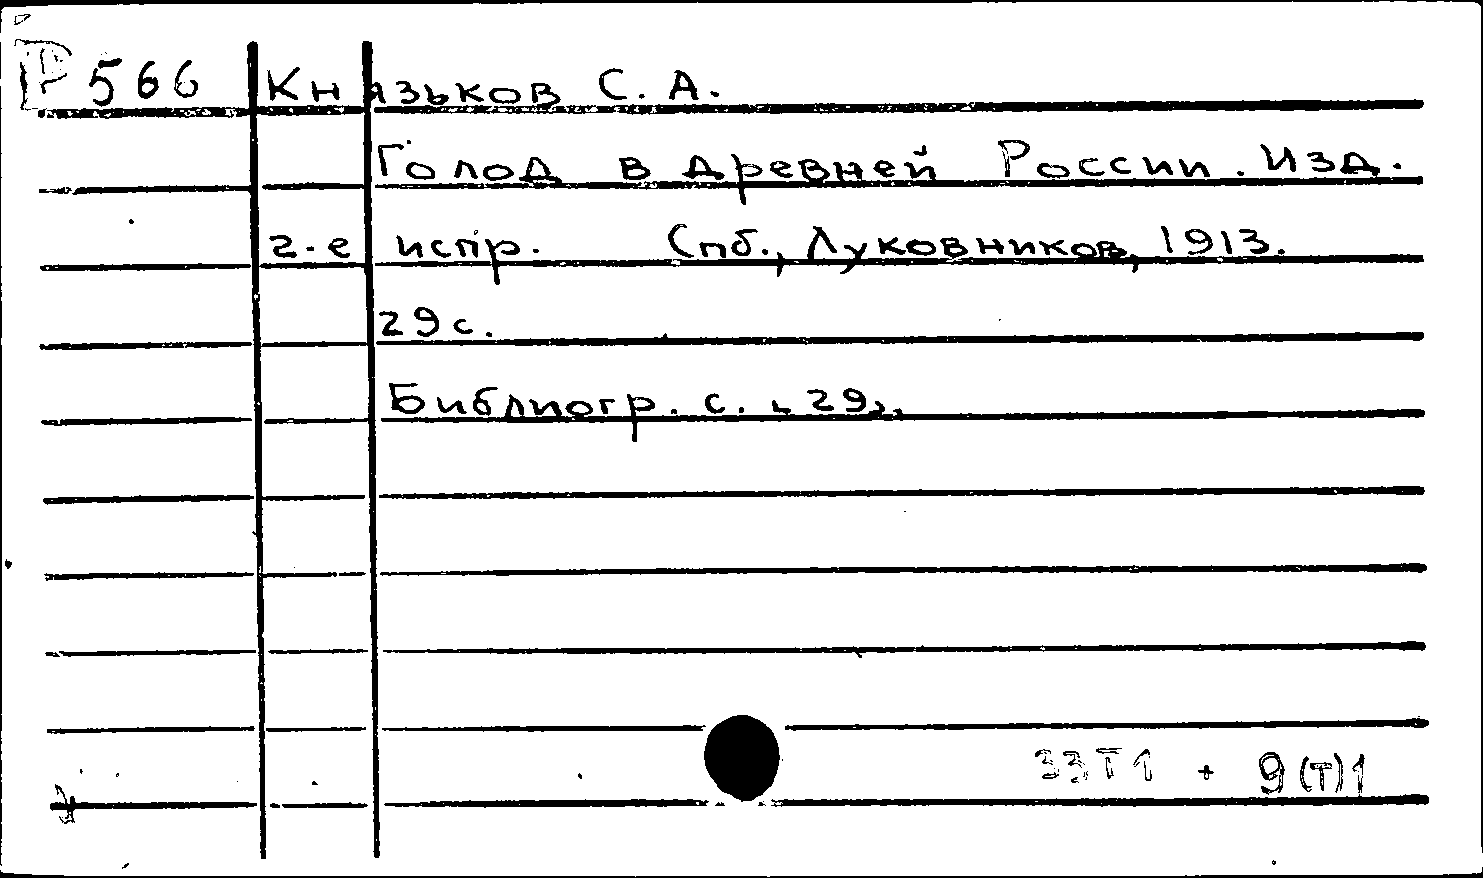 Р 566 Князьков С. А.
Голод в древней России. Изд.
2-е испр. Спб., Луковников, 1913.
29 с.
Библиогр. с. „29".
33Т1 + 9(Т)1